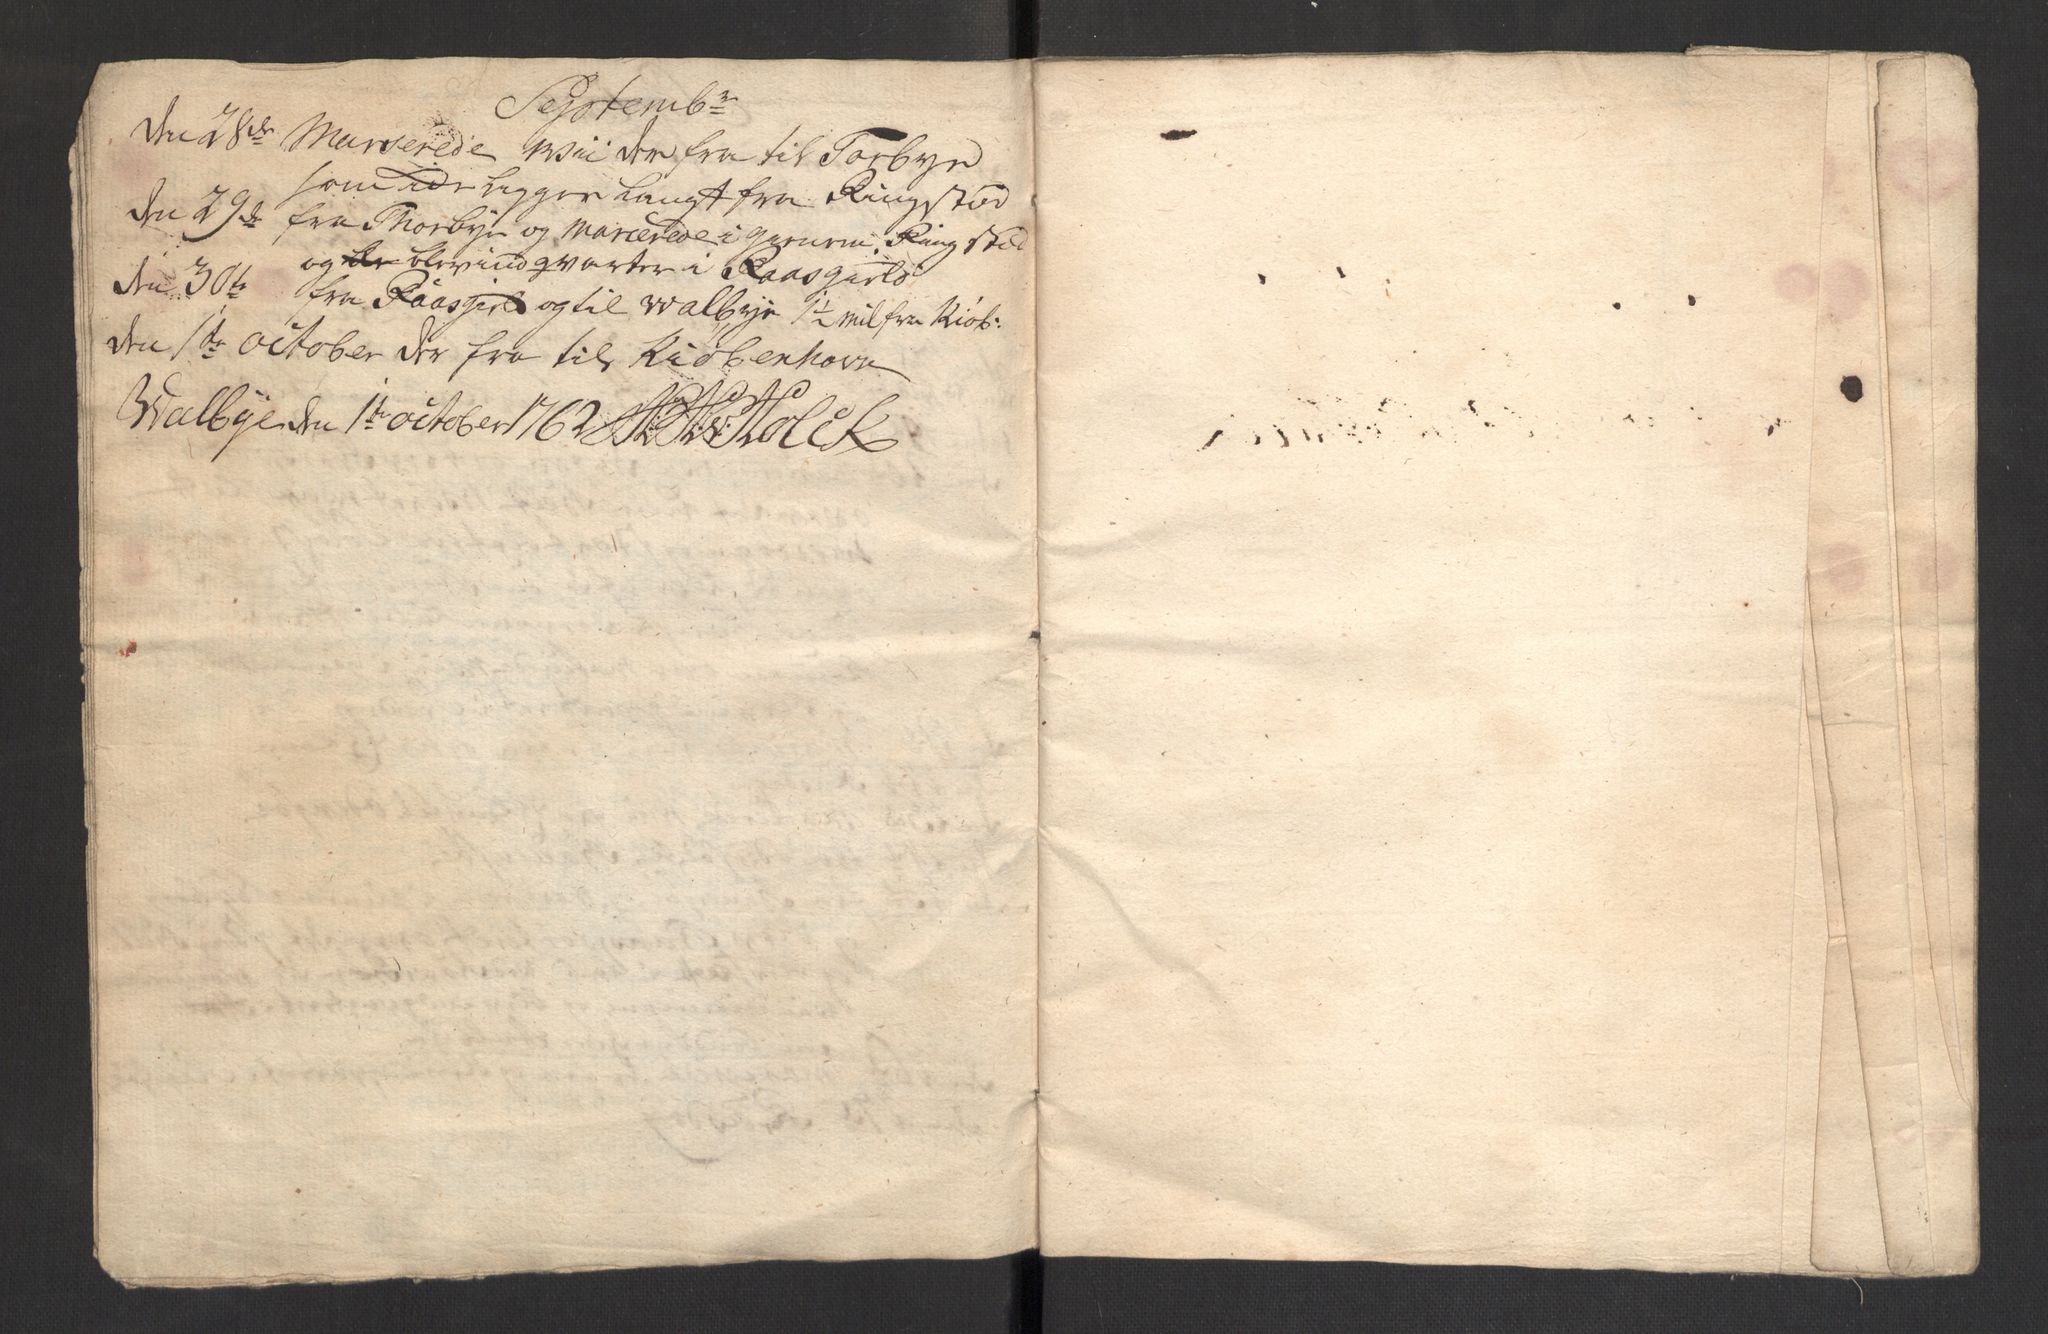 Septembr
den 28de Marserede wii der fra til Torbye
som ide ligger langt fra Ringstød
den 29de fra Thorbye og Marserede i gienem Ringstød
og de blev indqvarter i Raasgield
den 30te fra Raasgield og til Walbye 1½ mil fra Kiøb:
den 1te october der fra til Kiøbenhavn
Walbye den 1te october 1762 Holck